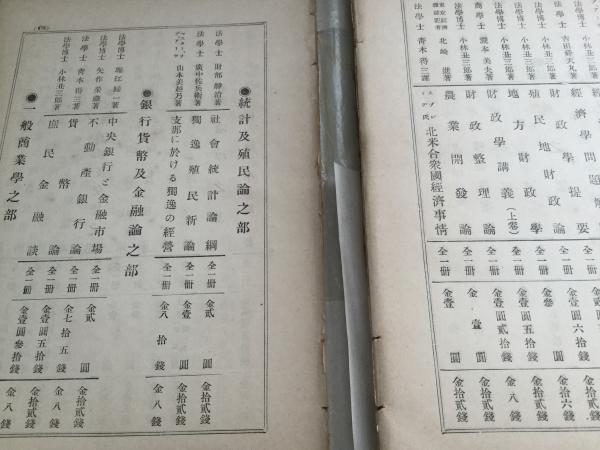 經濟學問題
法學士 吉田舜天丸著 財政學提要 全一冊 金壹圓六拾錢 金拾六錢
法學博士 小林丑三郎著 殖民地財政論 全一冊 金參圓
法學博士 小林丑三郎著 地方財政學 全一冊 金壹圓五拾錢 金拾貳錢
商學士 瀧本美夫著 財政學講義(上卷) 全一冊 金壹圓貳拾錢 金八錢
法學博士 小林丑三郎著 財政整理論 全一冊 金壹圓 金拾貳錢
北崎進著 農業開發論 全一冊 金壹圓 金拾貳錢
法學士 青木得三譯 北米合衆國經濟事情
●統計及殖民論之部
法學士 財部靜治著 社會統計論綱 全一冊 金貳圓 金拾貳錢
法學士 廣中佐兵衛著 獨逸殖民新論 全一冊 金壹圓 金拾貳錢
山本美越乃著 支那に於ける獨逸の經營 全一冊 金八拾錢 金八錢
●銀行貨幣及金融論之部
法學博士 堀江歸一著 中央銀行と金融市場 全一冊 金貳圓 金拾貳錢
法學博士 矢作榮藏著 不動產銀行論 全一冊 金七拾五錢 金八錢
法學士 青木得三著 貨幣論 全一冊 金壹圓五拾錢 金拾貳錢
法學博士 小林丑三郎著 庶民金融談 全一冊 金壹圓參拾錢 金八錢
●一般商業學之部